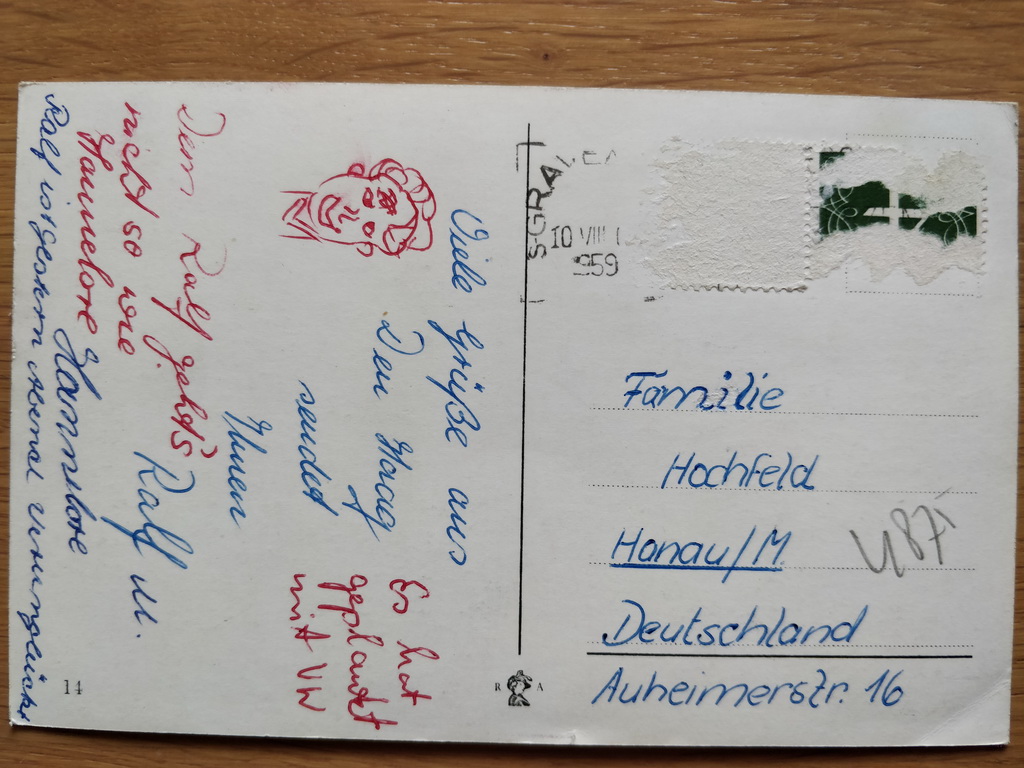 Viele Grüße aus
Den Haag
sendet
Ihnen
Ralf u.
Hannelore
Es hat
geplantet
mit VW
Dem Ralf geht's
nicht so wie
Hannelore
Ralf ist gestern Abend verunglückt
S-GRAVEN
10 VIII
959
Familie
Hochfeld
Hanau/M
Deutschland
Auheimerstr. 16
487
R A
14